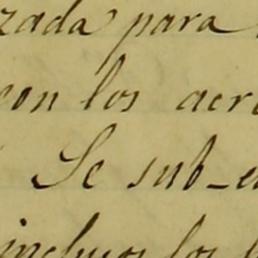 zada para
con los acre
Se sub-e
incluso los